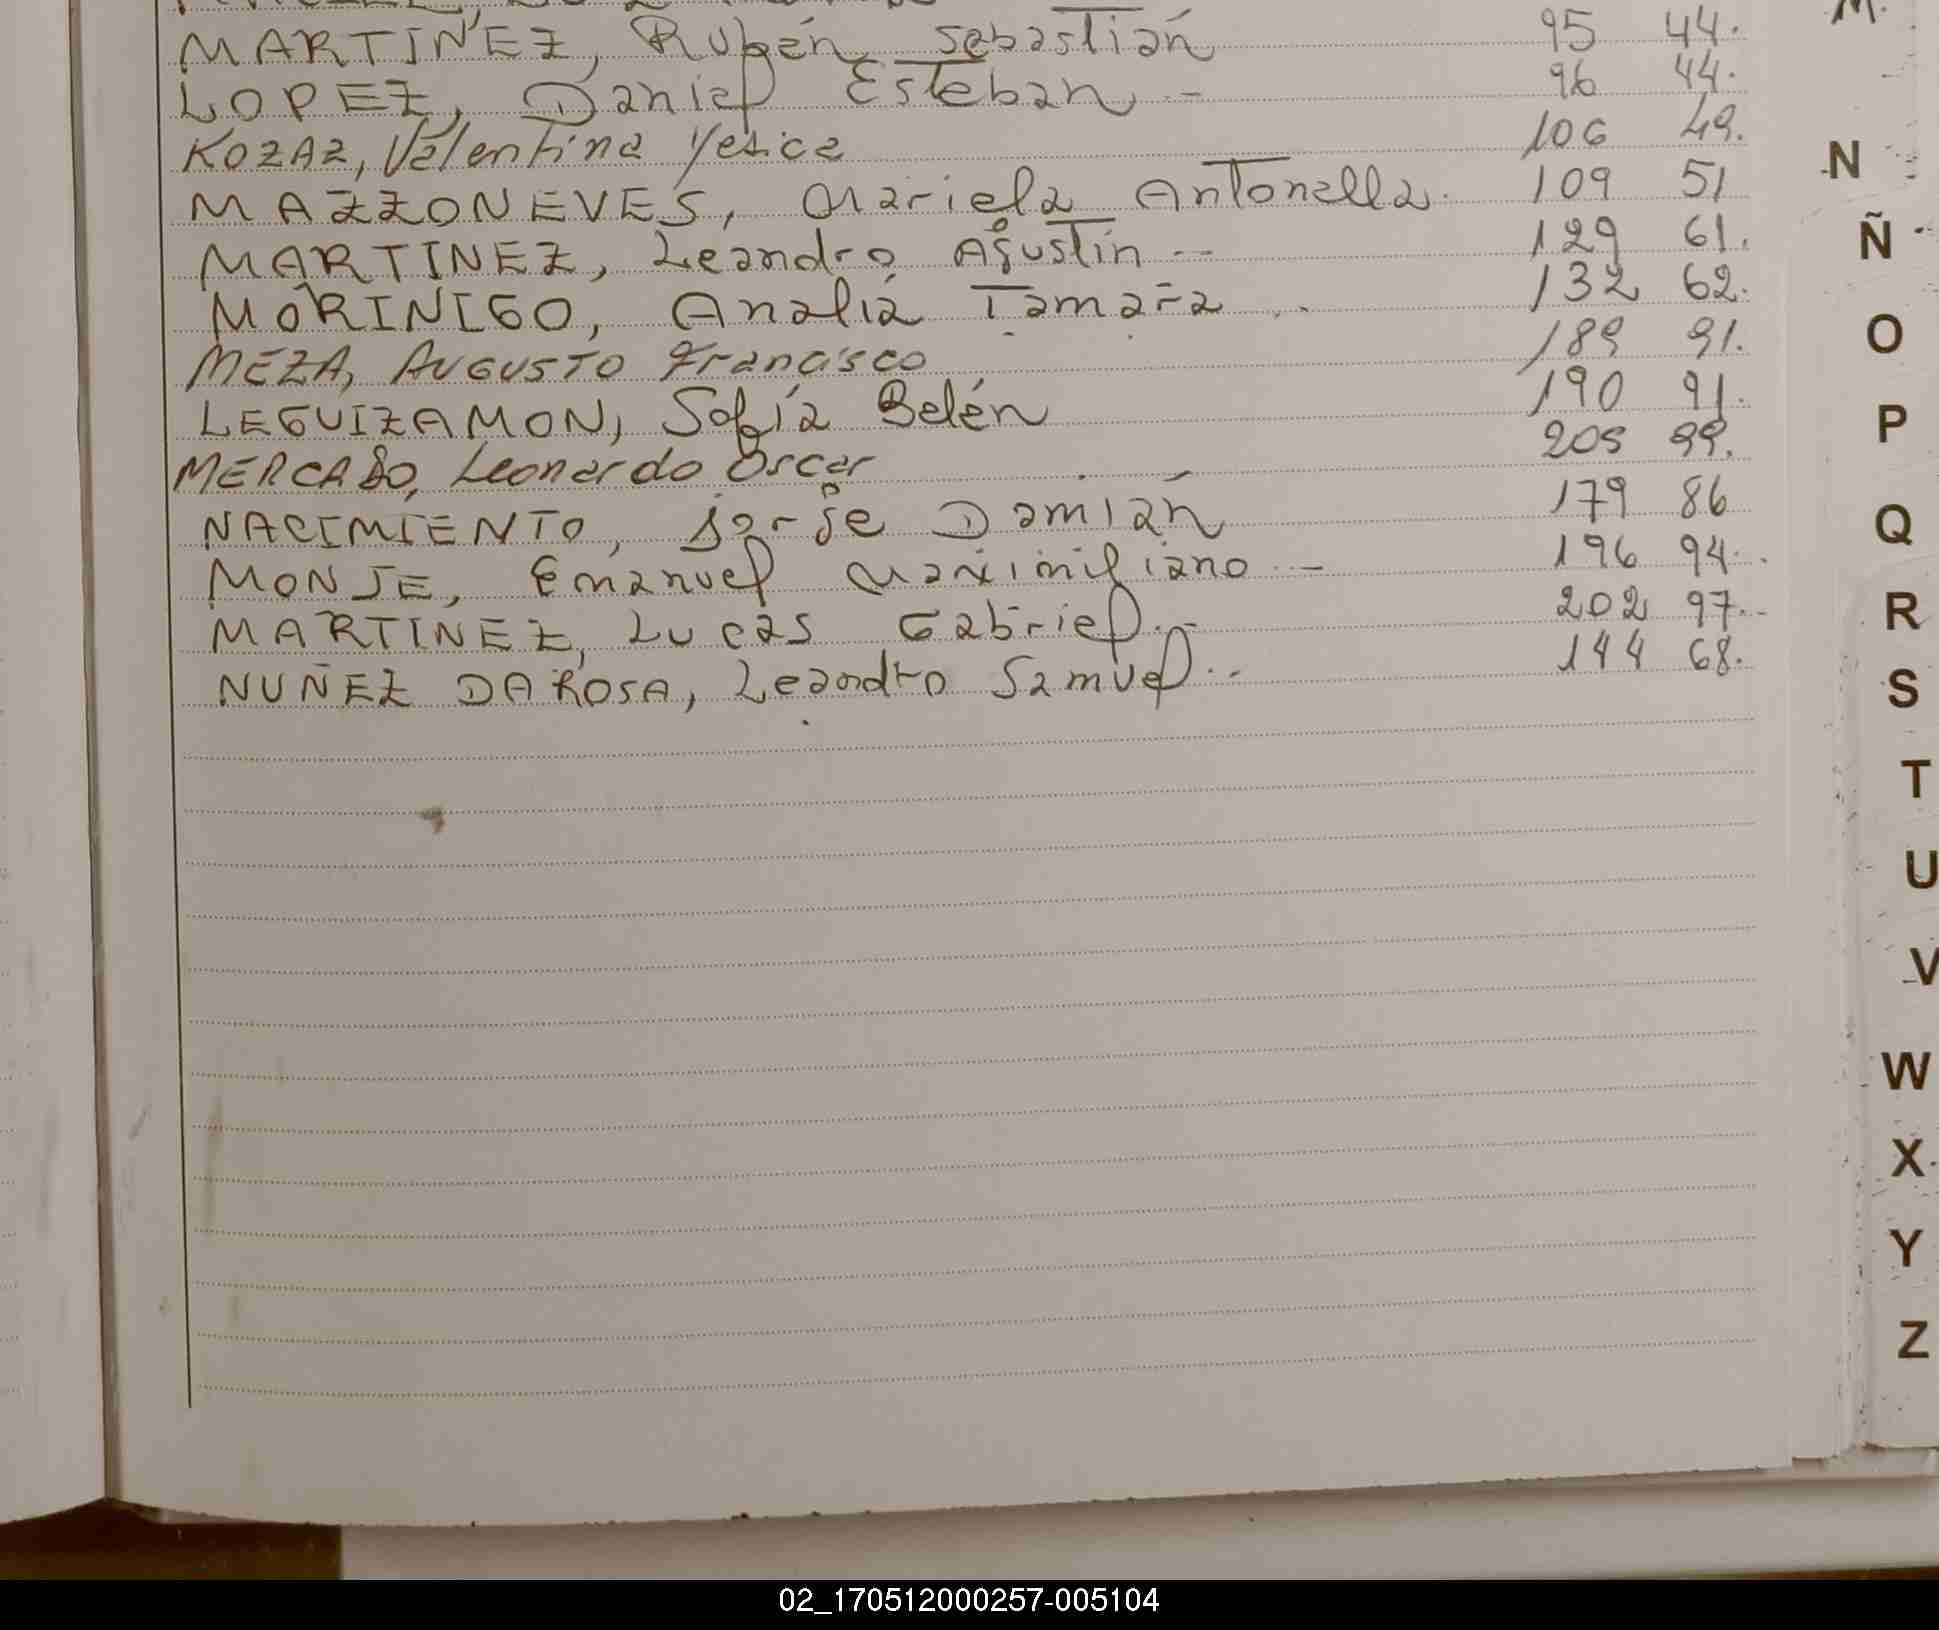 MARTINEZ, Rubén Sebastián 95 44.
LOPEZ, Daniel Esteban - 96 44.
KOZAZ, Valentina Yesica 106 49.
MAZZONEVES, Mariela Antonella. 109 51
MARTINEZ, Leandro Agustín -- 129 61.
MORINIGO, Analia Tamara .. 132 62.
MEZA, AUGUSTO Francisco 189 91.
LEGUIZAMON, Sofía Belén 190 91.
MERCADO, Leonardo Oscar 205 99.
NACIMIENTO, Jorge Damián 179 86
MONJE, Emanuel Maximiliano.- 196 94.
MARTINEZ, Lucas Gabriel.- 202 97.
NUÑEZ DAROSA, Leandro Samuel.- 144 68.
M.
N
Ñ
O
P
Q
R
S
T
U
V
W
X
Y
Z
02_170512000257-005104